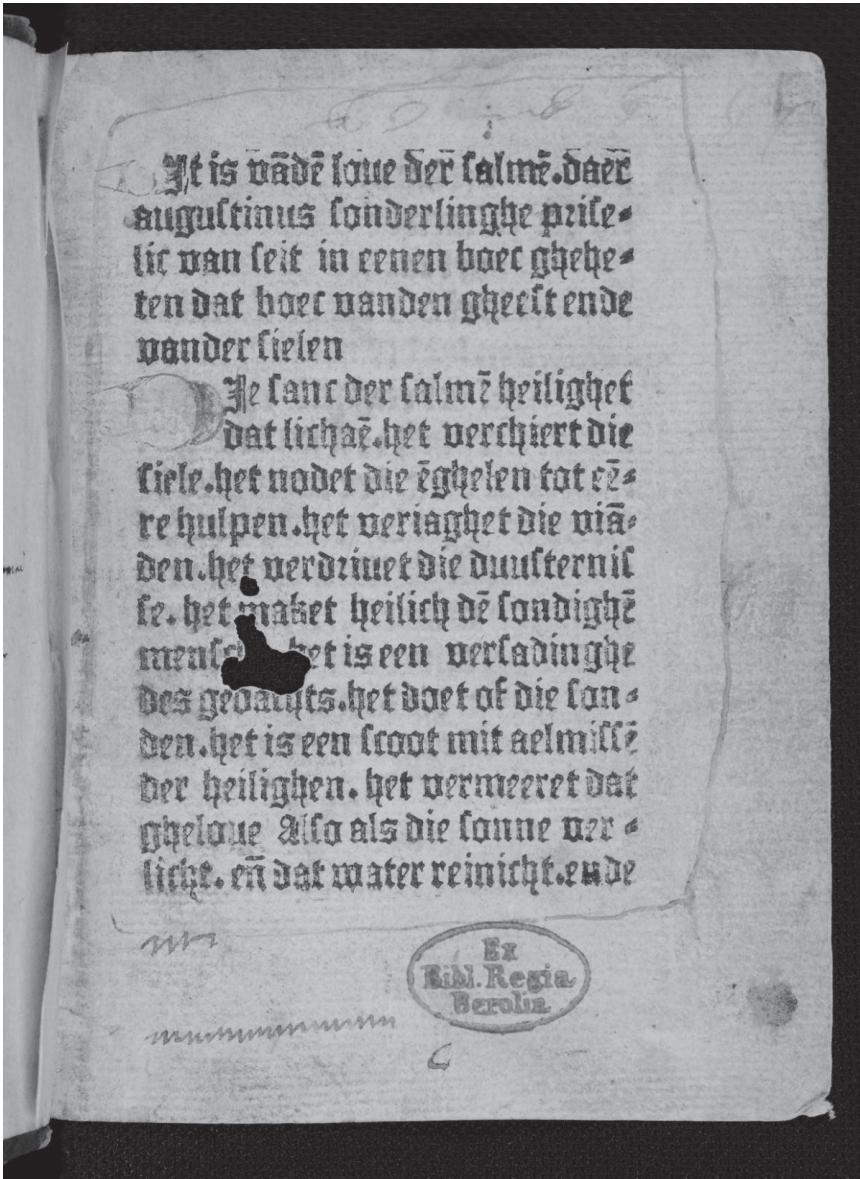 It is vādē loue der salmē.daer
augustinus sonderlinghe prise⸗
lic van seit in eenen boec ghehe⸗
ten dat boec vanden gheest ende
vander sielen
Ie sanc der salmē heilighet
dat lichaē.het verchiert die
siele.het nodet die ēghelen tot eē⸗
re hulpen.het veriaghet die viā⸗
den.het verdriuet die duusternis
se.het maket heilich dē sondighē
het is een versadinghe
des gedachts.het doet of die son⸗
den.het is een scoot mit aelmissē
der heilighen. het vermeeret dat
gheloue Also als die sonne ver⸗
licht. eñ dat water reinicht.ende
Ex
Bibl. Regia
Berolin